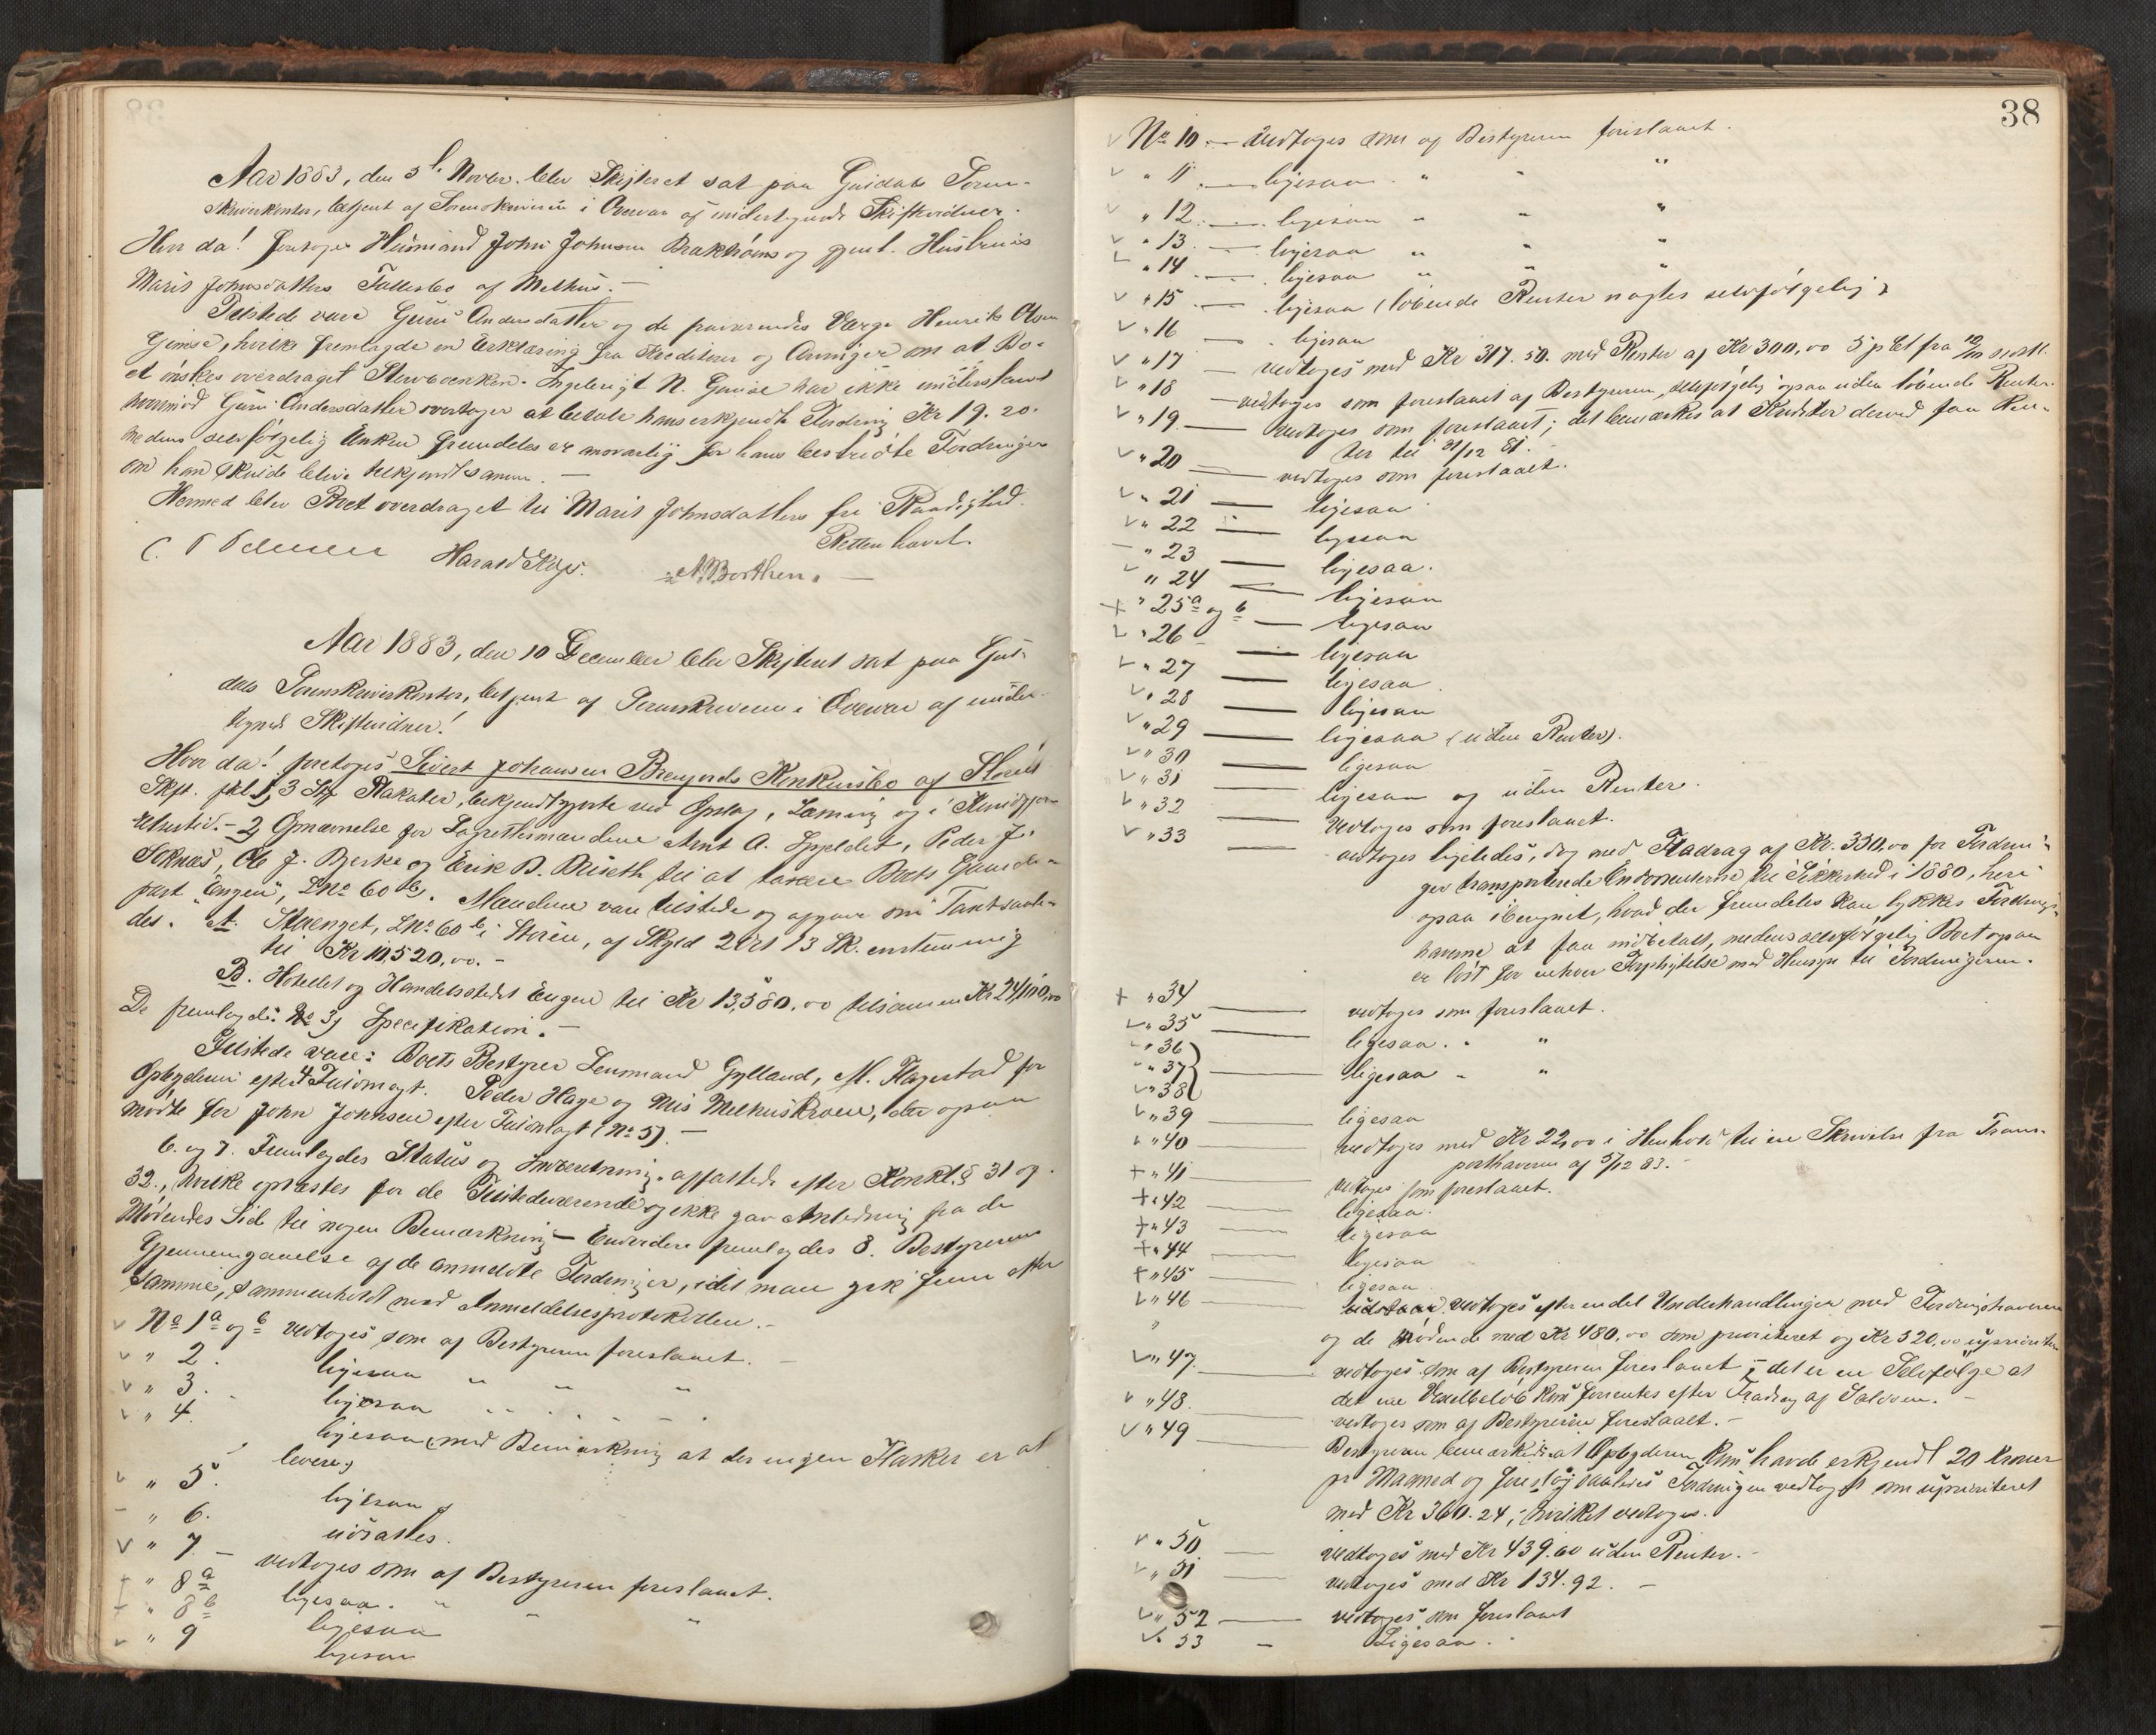 Aar 1883, den 3 Novbr. blev Skifteret sat paa Guldals Soren-
skriverkontor, betjent af Sorenskriveren i Overvær af undertegnede Skiftevidner.
Hvor da! foretoges Husmand John Johnsen Brakhans og gjenl. Hustrues
Marit Johnsdatters Fællesbo af Melhus. —
Tilstede vare Guru Andersdatter og de Værge Henrik Olsen
Gimse, hvilke fremlagde en Erklæring fra Kreditorer og Arvinger om at Bo-
et ønskes overdraget Stervboenken. Ingebrigt N. Gimse har ikke underskrevet
hvorimod Guru Andersdatter overtager at betale hans erkjendte Fordring Kr 19.20.
medens selvfølgelig Enken fremdeles er ansvarlig for hans bestridte Fordringer
om han skulde blive tilkjendt samme. —
Hermed blev Boet overdraget til Marit Johnsdatters fri Raadighed.
Retten hævet.
Harald N. Borthen. —
Aar 1883, den 10 December blev Skifteret sat paa Gul-
dals Sorenskriverkontor, betjent af Sorenskriveren i Overvær af under-
tegnede Skiftevidner!
Hvor da! foretoges Sivert Johansen Konkursbo af Støren
Skpt. fkl. 1, 3 Stk Plakater, bekjendtgjorte ved Opslag, Læsning og i Kundgjør-
elsestid. - 2, Opnævnelse for Lagrettesmændene Arnt A. Peder J.
Soknæs, Ole J. Bjerke og Erik B. til at taxere Boets Gaarde-
part "Engen", LNo 60 b. Mændene vare tilstede og opgave sin Taxt saale-
des. A. LNo 60 b i Støren, af Skyld 2 Ort 13 Sk. enstemmig
til Kr 10,520,00. -
B. Hotellet og Handelsstedet Engen til Kr 13,580,00 tilsammen Kr 24,100,00
De fremlagde: No 3, Specifikation. —
Tilstede vare: Boets Bestyrer Lensmand Gylland, M. for
efter 4 Fuldmagt. Peder Hage og Nils Melhuskroen, der ogsaa
mødte for John Johnsen efter Fuldmagt (No 5). —
6. og 7. Fremlagdes Status og Indberetning, affattede efter Konkl. § 31 og
32., hvilke oplæstes for de Tilstedeværende og ikke gav Anledning fra de
Mødendes Side til nogen Bemærkning — Endvidere fremlagdes 8. Bestyrerens
Gjennemgaaelse af de anmeldte Fordringer, idet man gik frem efter
samme, sammenholdt med Anmeldelsesprotokollen. —
No 1 a og b vedtoges som af Bestyreren foreslaaet. —
" 2. ligesaa " " "
" 3. ligesaa
" 4. ligesaa (med Bemærkning at der ingen Flasker er at
levere)
" 5. ligesaa
" 6. udsattes.
" 7. — vedtoges som af Bestyreren foreslaaet.
" 8 a ligesaa. " " "
" 8 b ligesaa
" 9 ligesaa
38
No 10. — vedtoges som af Bestyreren foreslaaet.
" 11. — ligesaa. " " "
" 12. — ligesaa " " "
" 13. — ligesaa " " "
" 14 — ligesaa " " "
" 15 — ligesaa (løbende Renter nægtes selvfølgelig)
" 16 — ligesaa
" 17 — vedtoges med Kr 317.50. med Renter af Kr 300,00 5 pCt fra
" 18 — vedtoges som foreslaaet af Bestyreren, selvfølgelig ogsaa uden løbende Renter.
" 19. — vedtoges som foreslaaet; det bemærkes at Kreditor derved faar Ren-
ter til 31/12 81.
" 20 — vedtoges som foreslaaet.
" 21 — ligesaa
" 22 — ligesaa
" 23 — ligesaa.
" 24 — ligesaa
" 25 a og b — ligesaa
" 26 — ligesaa
" 27 — ligesaa.
" 28 — ligesaa
" 29 — ligesaa (uden Renter).
" 30 — ligesaa
" 31 — ligesaa og uden Renter.
" 32 — vedtoges som foreslaaet.
" 33 — vedtoges ligeledes, dog med Fradrag af Kr. 330,00 for Fordrin-
ger transporterede til Sikkerhed i 1880,
hvad der fremdeles kan lykkes Fordrings-
haverne at faa indbetalt, medens selvfølgelig Boet ogsaa
er løst for enhver Forpligtelse med Hensyn til Fordringerne.
" 34 — vedtoges som foreslaaet.
" 35 — ligesaa. " "
" 36
" 37 — ligesaa " "
" 38
" 39 ligesaa
" 40 — vedtoges med Kr 22,00 i Henhold til en Skrivelse fra Trans-
porthaveren af 5/12 83. —
" 41 — vedtoges som foreslaaet.
" 42 — ligesaa.
" 43 — ligesaa
" 44 — ligesaa
" 45 — ligesaa
" 46 — vedtoges efter endel Underhandlinger med Fordringshaveren
" og de mødende med Kr 480,00 som prioriteret og Kr 320,00 uprioriteret
" 47. — vedtoges som af Bestyreren foreslaaet; det er en Selvfølge at
det ene Vexelbeløb kun forrentes efter Fradrag af Saldoen. —
" 48. — vedtoges som af Bestyreren foreslaaet. —
" 49 — Bestyreren bemærkede at kun havde erkjendt 20 Kroner
pr Maaned og foreslog saaledes Fordringen vedtaget som uprioriteret
med Kr 360.24, hvilket vedtoges.
" 50 — vedtoges med Kr 439.60 uden Renter. —
" 51 — vedtoges med Kr 134.92. —
" 52 — vedtoges som foreslaaet
" 53 — Ligesaa.